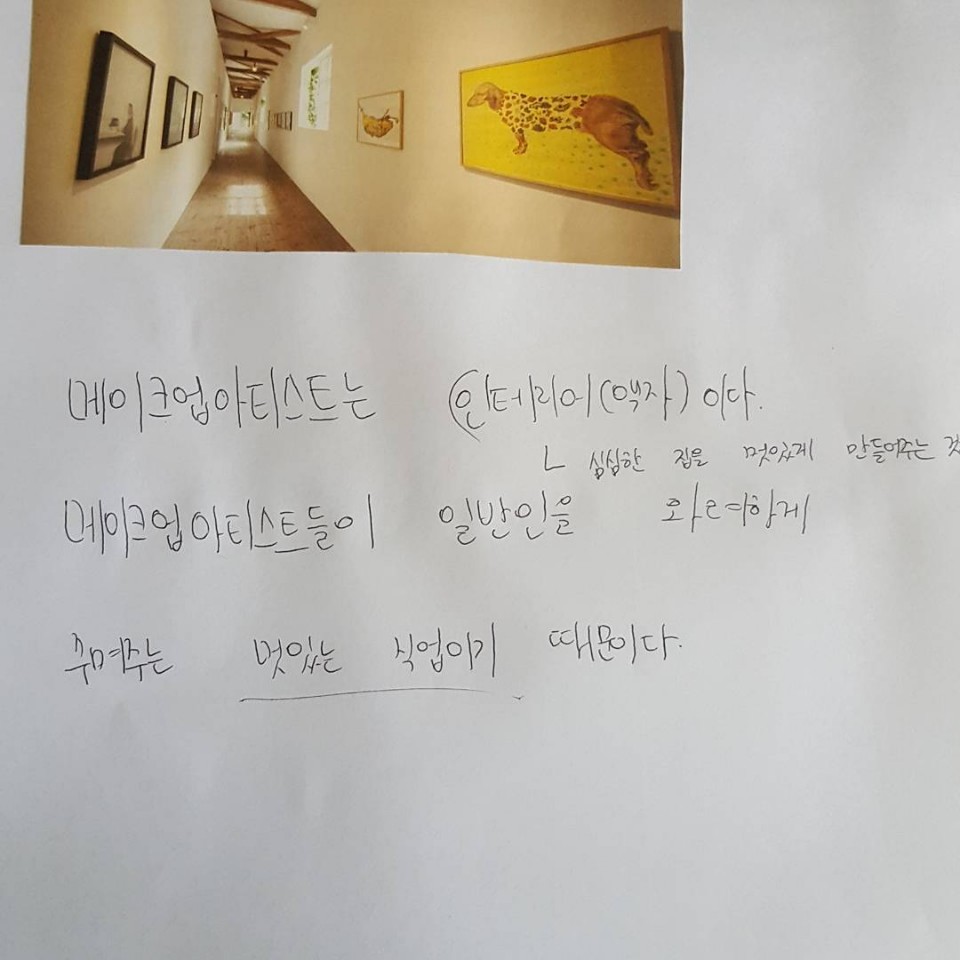 메이크업아티스트는 인테리어(액자)이다.
ㄴ 심심한 집을 멋있게 만들어주는 것
메이크업아티스트들이 일반인을 화려하게
꾸며주는 멋있는 직업이기 때문이다.